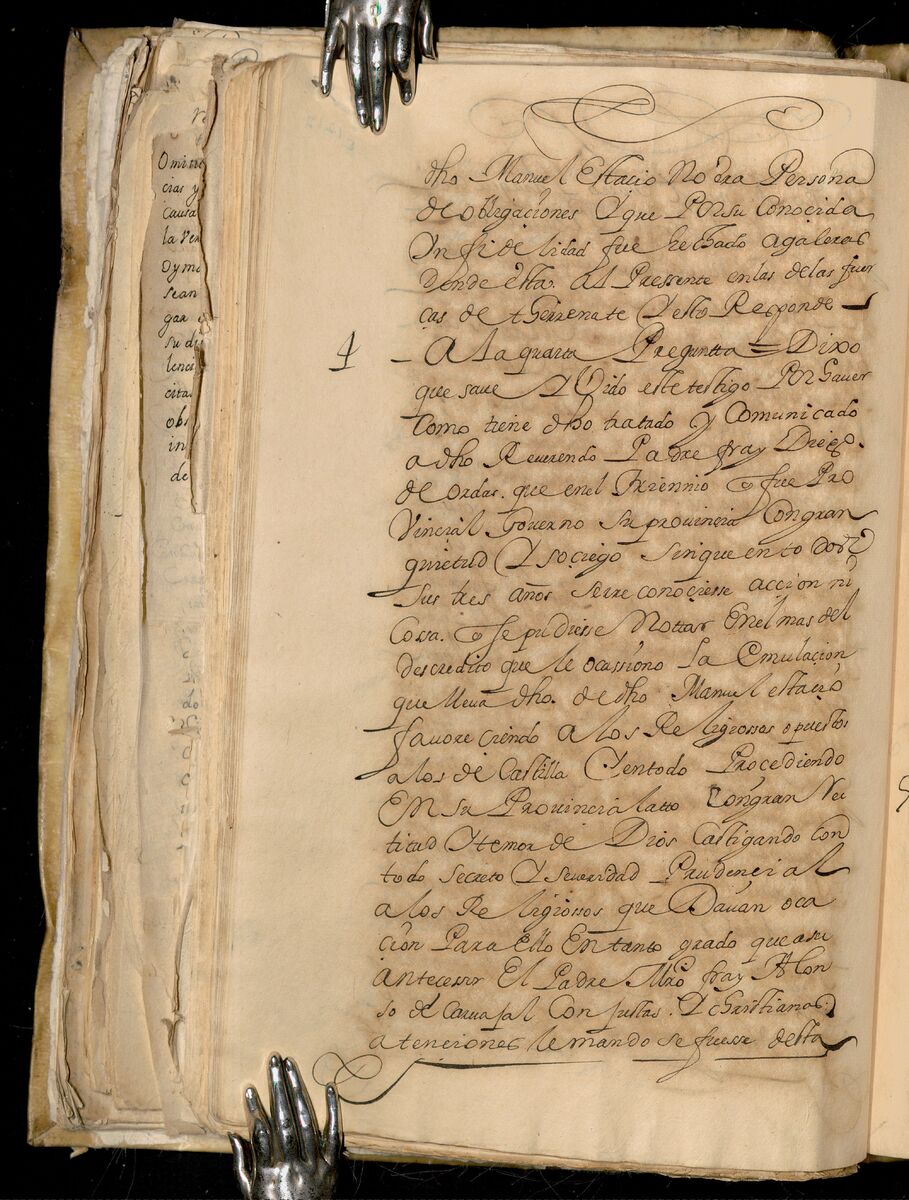 Omitie
cias y
causa
la ven
sean
gar
su di
lenci
cita
obs
in
de
dho Manuel Estacio No era Persona
de obligaciones Y que Por su Conocida
Ynfidelidad fue hechado a galeras
donde esta. al Pressente en las de las fuer
ças de therrenate Y esto Responde
4
A La quarta Pregunta = Dixo
que save Y Vido este testigo Por haver
Como tiene dho tratado y Comunicado
a dho Reverendo Padre fray Diego.
de ordas. que en el triennio q̃ fue Pro
Vincial Governo su provincia Con gran
quietud Y sociego sin que en todos
sus tres años se reconociesse accion ni
Cossa. q̃ se pudiesse Nottar En el mas del
descredito que le ocassiono La emulacion
que lleva dho. de dho Manuel estacio
favoreciendo a los Religiossos opuestos
a los de Castilla Y en todo Procediendo
En su Provincialatto Con gran Rec
titud Y temor de Dios Castigando Con
todo secreto Y severidad Prudencial
a los Religiossos que Davan oca
cion Para Ello En tanto grado que a su
antecessor El Padre Mro fray Alon
so de Carvajal Con justas. Y christianas
atenciones le mando se fuesse desta